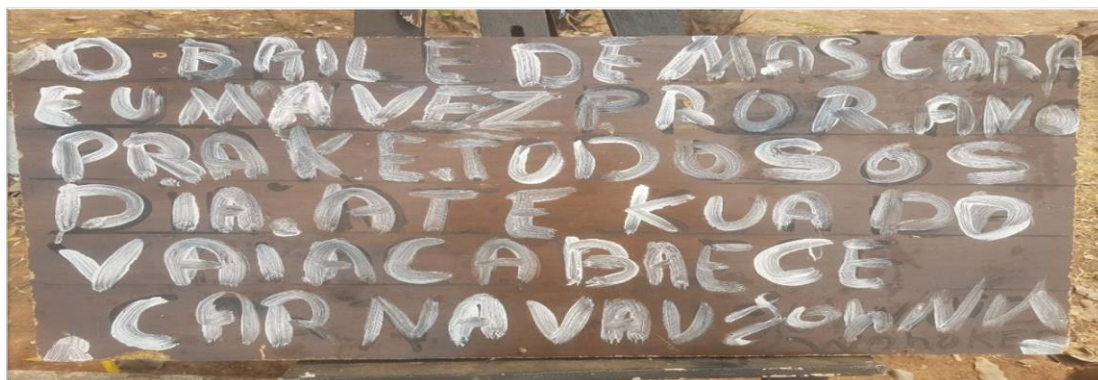 O BAILE DE MASCARA
E UMA VEZ PROR.ANO
PRAKE.TODOS OS
DIA.ATE KUADO
VAI ACABA ECE
CARNAVAU